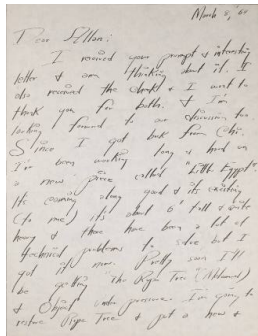 March 8, 60
Dear Ellen:
I received your prompt & interesting
letter & am thinking about it. I
also received the check & I want to
thank you for both. & I'm
looking forward to our discussion too
Since I got back from Chi.
I've been working long & hard on
a new piece called "Little Egypt".
Its coming along good & its exciting
(to me) it's about 6' tall & quite
heavy & there have been a lot of
technical problems to solve but I
got it now. Pretty soon I'll
be getting the Rope Tree (Abandoned)
& Object under pressure. I'm going to
restore Rope Tree & put a new &